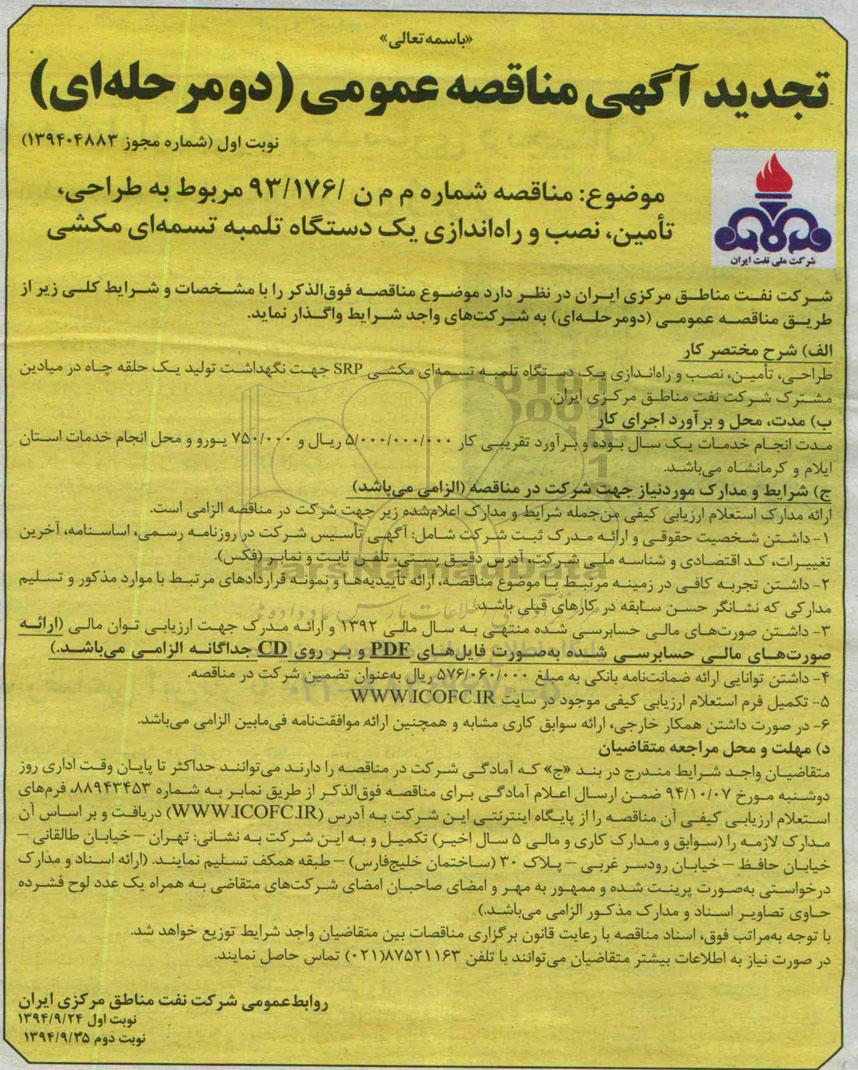 «باسمه تعالی»
تجدید آگهی مناقصه عمومی (دومرحله‌ای)
نوبت اول (شماره مجوز ۱۳۹۴۰۴۸۸۳)
موضوع: مناقصه شماره م م ن /۹۳/۱۷۶ مربوط به طراحی،
تأمین، نصب و راه‌اندازی یک دستگاه تلمبه تسمه‌ای مکشی
شرکت ملی نفت ایران
شرکت نفت مناطق مرکزی ایران در نظر دارد موضوع مناقصه فوق‌الذکر را با مشخصات و شرایط کلی زیر از
طریق مناقصه عمومی (دومرحله‌ای) به شرکت‌های واجد شرایط واگذار نماید.
الف) شرح مختصر کار
طراحی، تأمین، نصب و راه‌اندازی یک دستگاه تلمبه تسمه‌ای مکشی SRP جهت نگهداشت تولید یک حلقه چاه در میادین
مشترک شرکت نفت مناطق مرکزی ایران.
ب) مدت، محل و برآورد اجرای کار
مدت انجام خدمات یک سال بوده و برآورد تقریبی کار ۵/۰۰۰/۰۰۰/۰۰۰ ریال و ۷۵۰/۰۰۰ یورو و محل انجام خدمات استان
ایلام و کرمانشاه می‌باشد.
ج) شرایط و مدارک موردنیاز جهت شرکت در مناقصه (الزامی می‌باشد)
ارائه مدارک استعلام ارزیابی کیفی من‌جمله شرایط و مدارک اعلام‌شده زیر جهت شرکت در مناقصه الزامی است.
۱- داشتن شخصیت حقوقی و ارائه مدرک ثبت شرکت شامل: آگهی تأسیس شرکت در روزنامه رسمی، اساسنامه، آخرین
تغییرات، کد اقتصادی و شناسه ملی شرکت، آدرس دقیق پستی، تلفن ثابت و نمابر (فکس).
۲- داشتن تجربه کافی در زمینه مرتبط با موضوع مناقصه، ارائه تأییدیه‌ها و نمونه قراردادهای مرتبط با موارد مذکور و تسلیم
مدارکی که نشانگر حسن سابقه در کارهای قبلی باشد.
۳- داشتن صورت‌های مالی حسابرسی شده منتهی به سال مالی ۱۳۹۲ و ارائه مدرک جهت ارزیابی توان مالی (ارائه
صورت‌های مالی حسابرسی شده به‌صورت فایل‌های PDF و بر روی CD جداگانه الزامی می‌باشد.)
۴- داشتن توانایی ارائه ضمانت‌نامه بانکی به مبلغ ۵۷۶/۰۶۰/۰۰۰ ریال به‌عنوان تضمین شرکت در مناقصه.
۵- تکمیل فرم استعلام ارزیابی کیفی موجود در سایت WWW.ICOFC.IR
۶- در صورت داشتن همکار خارجی، ارائه سوابق کاری مشابه و همچنین ارائه موافقت‌نامه فی‌مابین الزامی می‌باشد.
د) مهلت و محل مراجعه متقاضیان
متقاضیان واجد شرایط مندرج در بند «ج» که آمادگی شرکت در مناقصه را دارند می‌توانند حداکثر تا پایان وقت اداری روز
دوشنبه مورخ ۹۴/۱۰/۰۷ ضمن ارسال اعلام آمادگی برای مناقصه فوق‌الذکر از طریق نمابر به شماره ۸۸۹۴۳۴۵۳، فرم‌های
استعلام ارزیابی کیفی آن مناقصه را از پایگاه اینترنتی این شرکت به آدرس (WWW.ICOFC.IR) دریافت و بر اساس آن
مدارک لازمه را (سوابق و مدارک کاری و مالی ۵ سال اخیر) تکمیل و به این شرکت به نشانی: تهران – خیابان طالقانی –
خیابان حافظ – خیابان رودسر غربی – پلاک ۳۰ (ساختمان خلیج‌فارس) – طبقه همکف تسلیم نمایند. (ارائه اسناد و مدارک
درخواستی به‌صورت پرینت شده و ممهور به مهر و امضای صاحبان امضای شرکت‌های متقاضی به همراه یک عدد لوح فشرده
حاوی تصاویر اسناد و مدارک مذکور الزامی می‌باشد.)
با توجه به‌مراتب فوق، اسناد مناقصه با رعایت قانون برگزاری مناقصات بین متقاضیان واجد شرایط توزیع خواهد شد.
در صورت نیاز به اطلاعات بیشتر متقاضیان می‌توانند با تلفن ۸۷۵۲۱۱۶۳(۰۲۱) تماس حاصل نمایند.
روابط‌عمومی شرکت نفت مناطق مرکزی ایران
نوبت اول ۱۳۹۴/۹/۲۴
نوبت دوم ۱۳۹۴/۹/۳۵